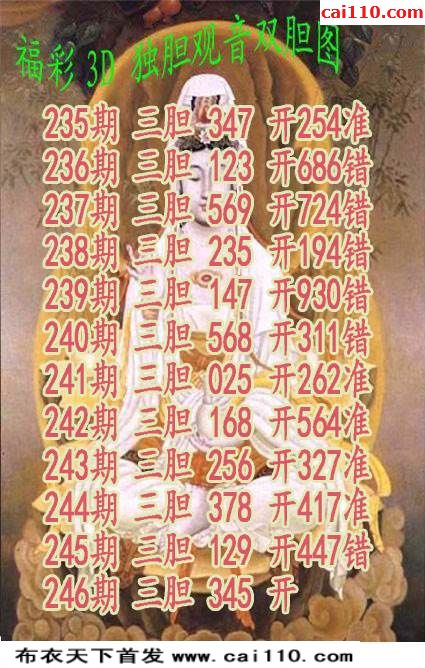 cai110.com
福彩 3D 独胆观音双胆图
235期 三胆 347 开254准
236期 三胆 123 开686错
237期 三胆 569 开724错
238期 三胆 235 开194错
239期 三胆 147 开930错
240期 三胆 568 开311错
241期 三胆 025 开262准
242期 三胆 168 开564准
243期 三胆 256 开327准
244期 三胆 378 开417准
245期 三胆 129 开447错
246期 三胆 345 开
布衣天下首发 www.cai110.com